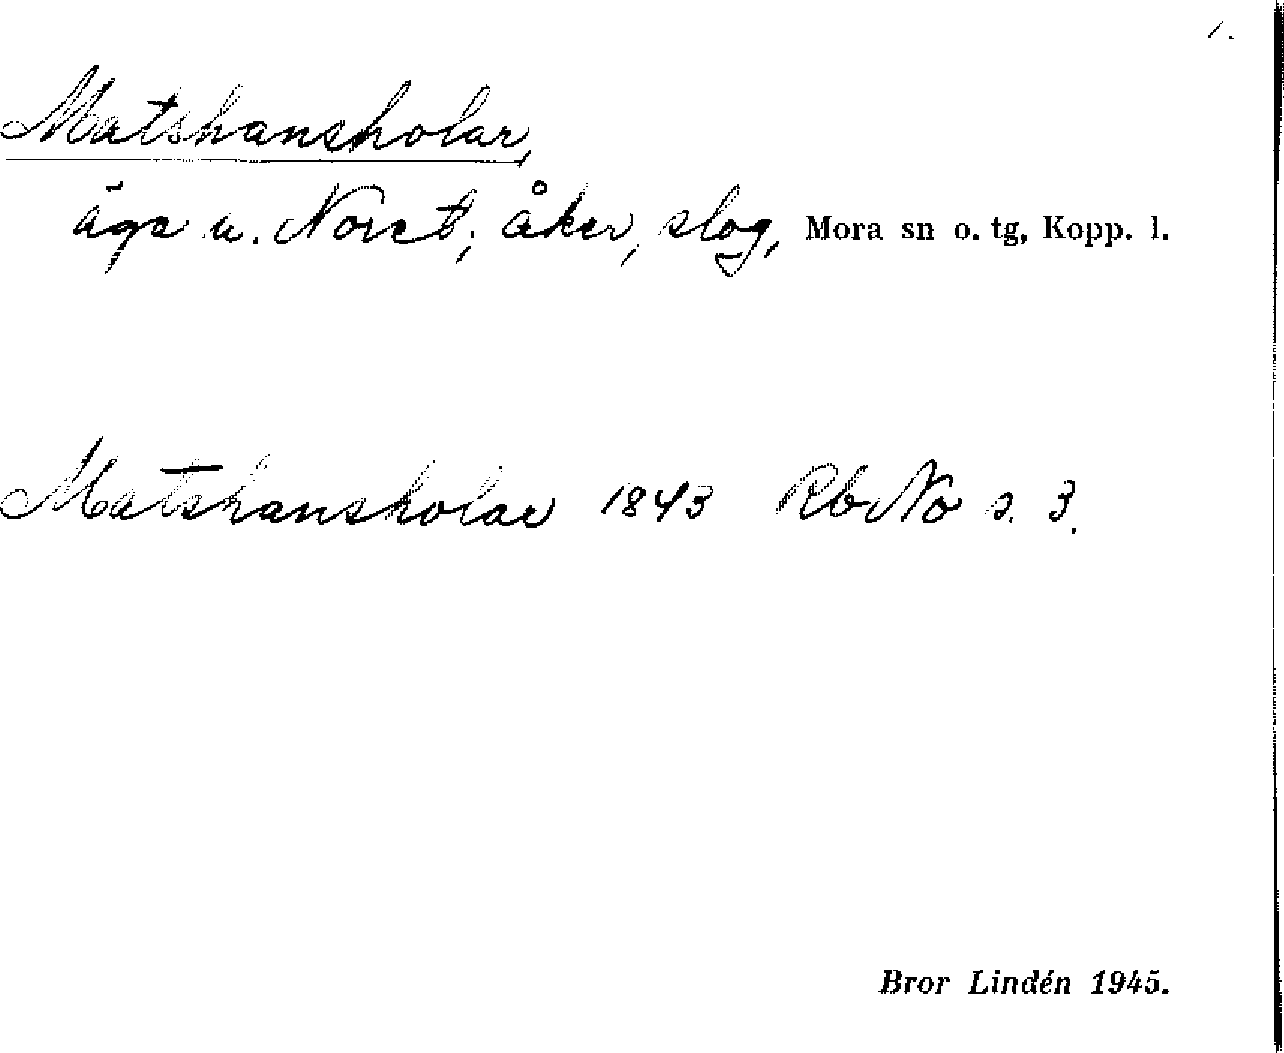 1.
Matshansholar,
äga u. Noret; åker, slog, Mora sn o. tg, Kopp. l.
Matshansholar 1843 Rb No s. 3.
Bror Lindén 1945.